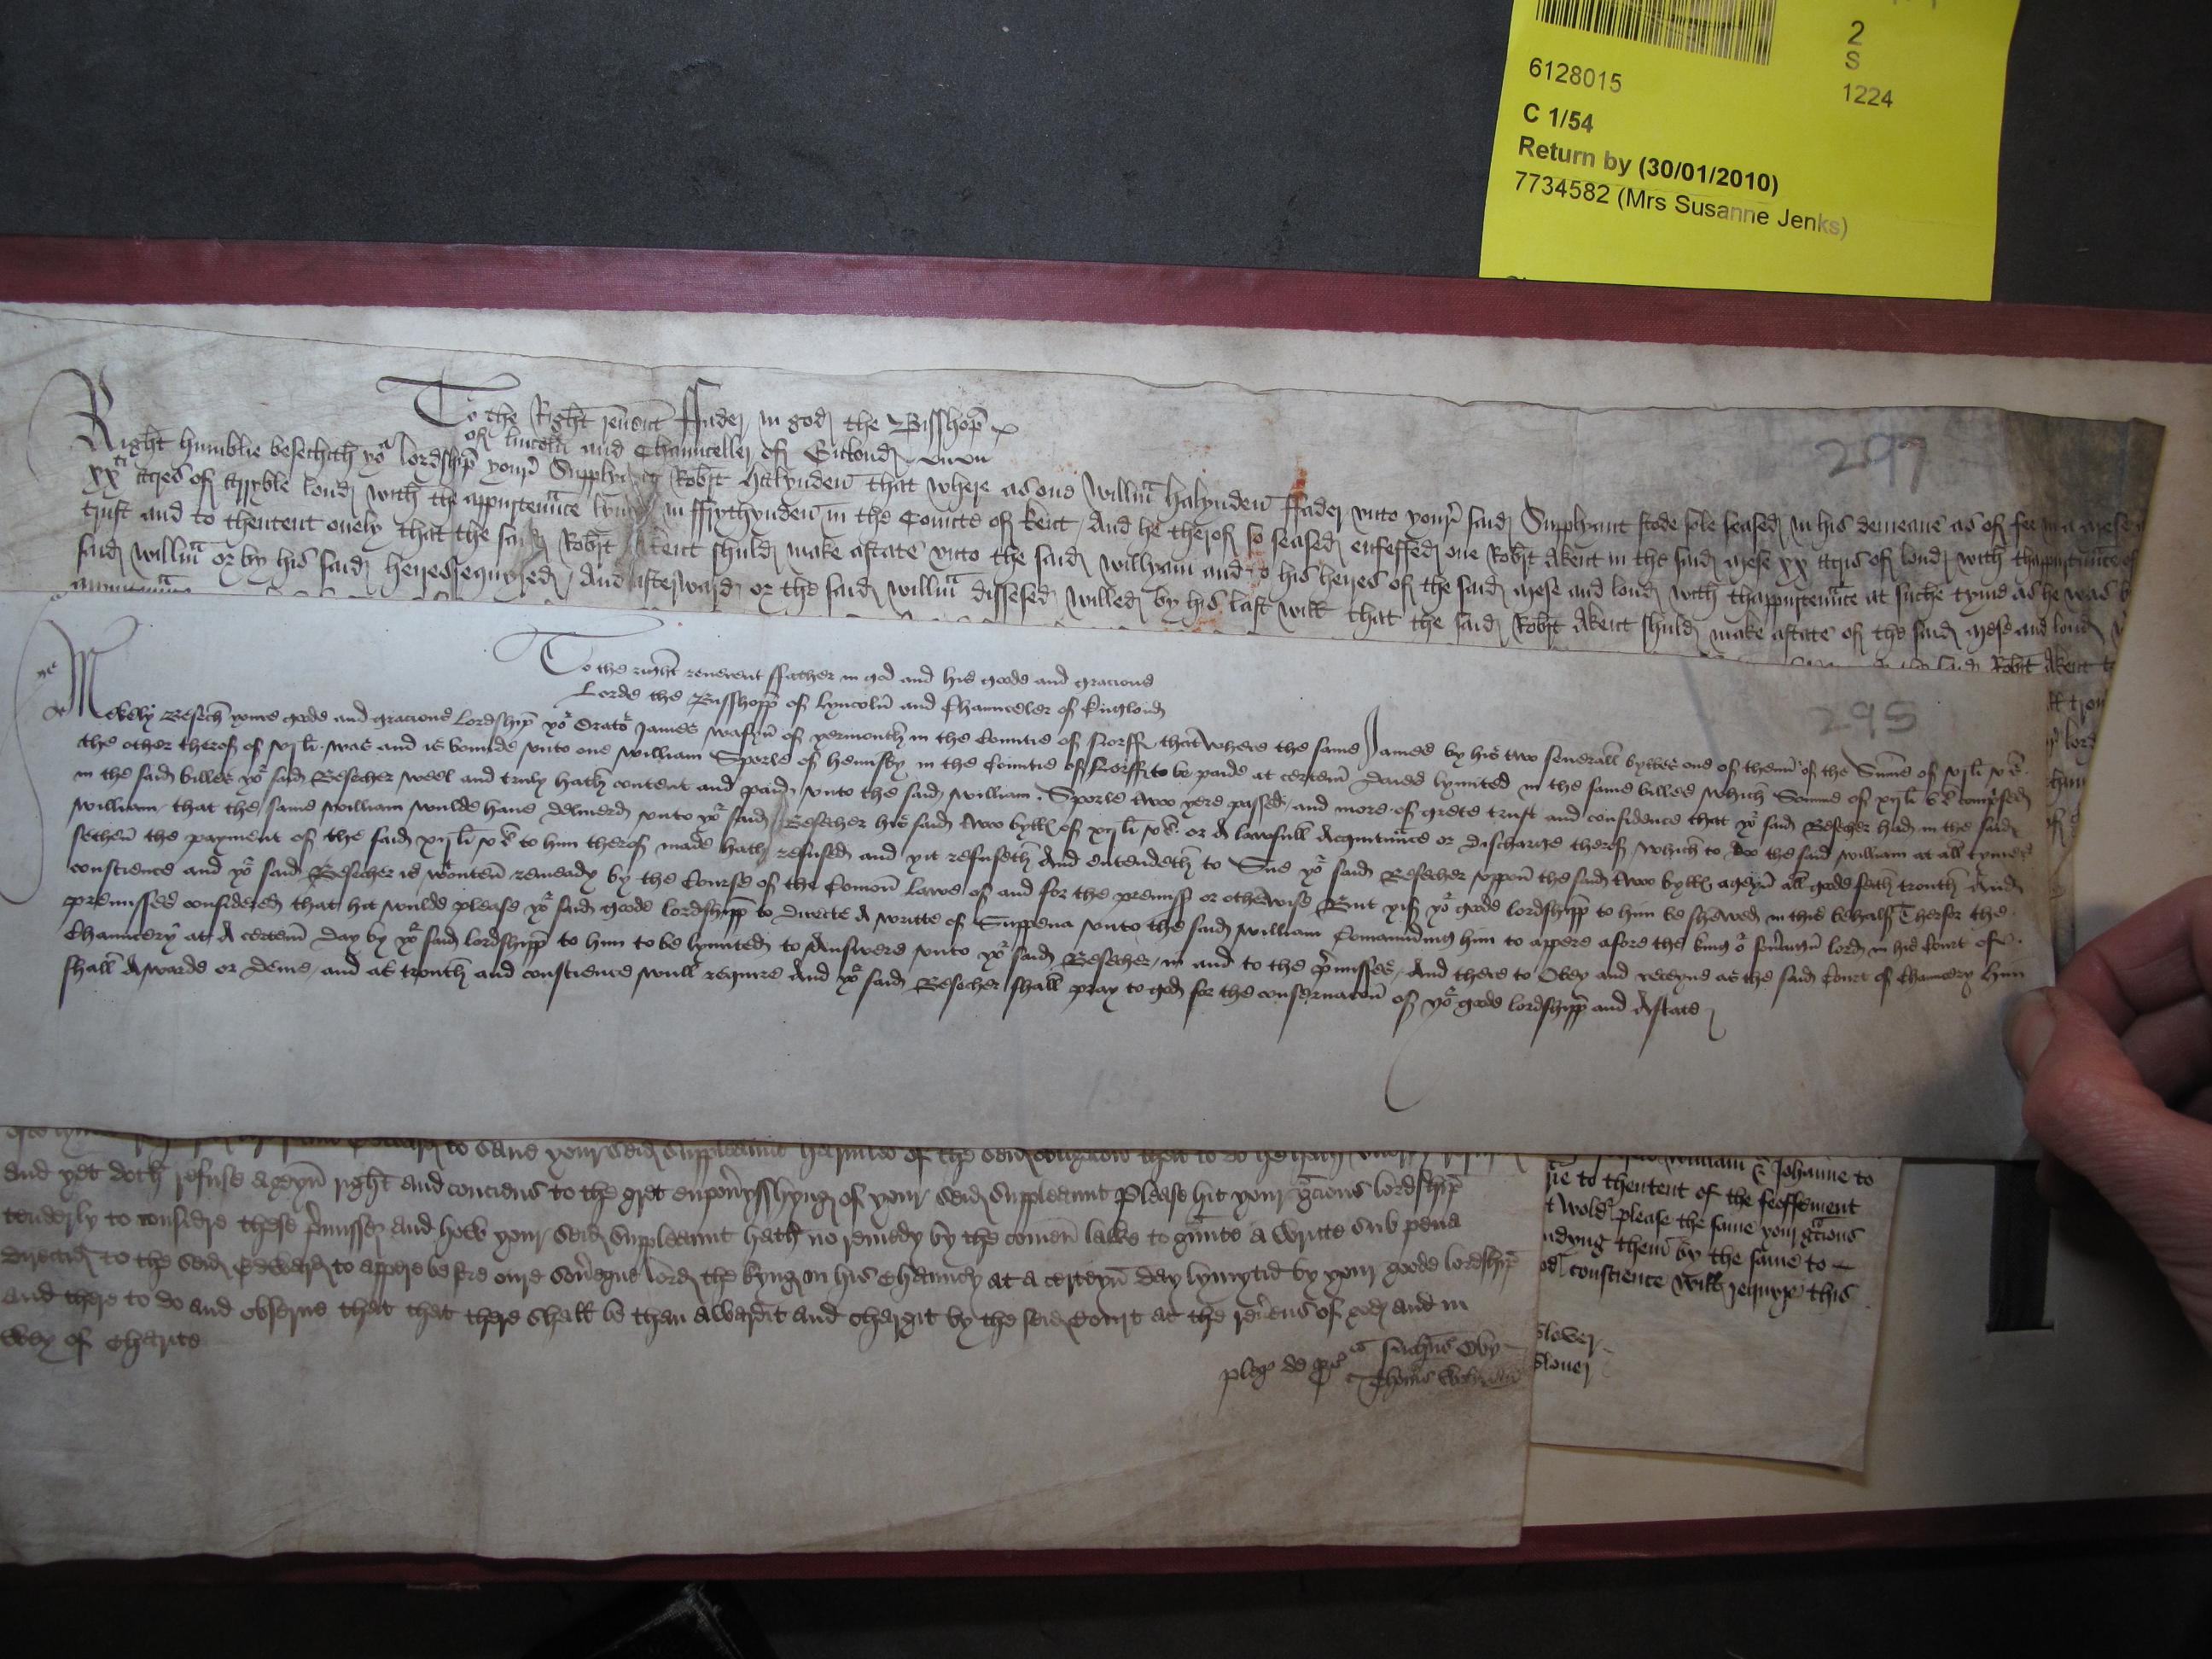 2
S
1224
6128015
C 1/54
Return by (30/01/2010)
7734582 (Mrs Susanne Jenks)
297
To the Right reu͛ent ffader in god the Bisshop̄
of lincoln̄ and Chaunceller of Enlond
Right humblie besechith yor lordship̄ your Supplyant Robt̄ halynden̄ that where as one Willm̄ halynden̄ ffader vnto your said Supplyant stode sole seased in his demeane as of fee in a mese
xxti acres of arable lond with the appurtenn̄ce lying in ffrythynden̄ in the Counte of Kent And he therof so seased enfeffed one Robt̄ Akent in the said mese xx acris of lond with thappurtenn̄ce
trust and to thentent onely that the said Robt̄ Akent shuld make astate vnto the said Willyam and to his heyres of the said mese and lond with thappurtenn̄ce at suche tyme as he was
said Willm̄ or by his said heyres requyred And afterward or the said Willm̄ dissesed willed by his last will that the said Robt̄ Akent shuld make astate of the said mese and lond
said Robt̄ Akent
298
To the right reuerent ffather in god and his goode and gracious
Lorde the Busshopp̄ of Lyncoln̄ and Chaunceler of Englond
Mekely Besech̄ youre goode and gracious Lordship̄ yor Orator James wasyn̄ of yermouth̄ in the Countie of Norff that where the same James by his two seuerall bylles one of them̄ of the Sum̄e of vj li. v s.
the other therof of vj li. was and is bounde vnto one William Sporle of hemsby in the Countie of Norff to be paide at certein̄ daies lymited in the same billes which Somme of xij li. v s. comp̄sed
in the said billes yor said Besecher weel and truly hath̄ content and paid vnto the said William Sporle two yere passed and more of grete trust and confidence that yor said Besecher had in the said
William that the same William wulde haue deliuerd vnto yor said Besecher his said two bylles of xij li. v s. or A lawfull Acquitaūce or discharge therof which to do the said William at all tymes
sethen̄ the payment of the said xij li. v s. to him therof made hath refused and yit refuseth̄ And entendeth̄ to Sue yor said Besecher vppon̄ the said two bylles ageyn̄ all gode feith trouth̄ And
conscience and yor said Besecher is wtouten̄ remeady by the Course of the Comon̄ Lawe of and for the premiss or otherwise But yif yor goode lordshipp̄ to him be shewed in this behalf Therfor the
premisses considered that hit wulde please yor said goode lordshipp̄ to directe A writte of Suppena vnto the said William Comaunding him to appere afore the king or souu͛aign̄ lord in his Court of
Chauncery at A certein̄ day by yor said lordshipp̄ to him to be lymited to Answere vnto yor said Besecher in and to the p̄misses And there to Obey and receyue as the said Court of Chauncery him
shall Awarde or deme and as trouth̄ and conscience wull require And yor said Besecher shall pray to god for the conseruacōn of yor goode lordshipp̄ and Astate
to saue your seid suppleaunt harmles of the seid
and yet doth refuse ageyn̄ right and conciens to the gret enpou͛ysshyng of your seid suppleaunt Please hit your gc̄ious lordship̄
tenderly to considre these p̄misses and how your seid suppleaunt hath no remedy by the comen̄ lawe to gūnte a Writte sub pena
directid to the seid Edward to appere before oure sou͛egne lord the kyng in his Chauncy at a certeyn̄ day lymytid by your goode lordship̄
and there to do and obserue that that there shall be than awardit and chargit by the seid Court at the reu͛ens of god and in
wey of charite
pleg de ps
Oby
Thoms
William & Johanne to
to thentent of the feoffement
wold please the same your gc̄ious
them̄ by the same to
conscience will requyr this